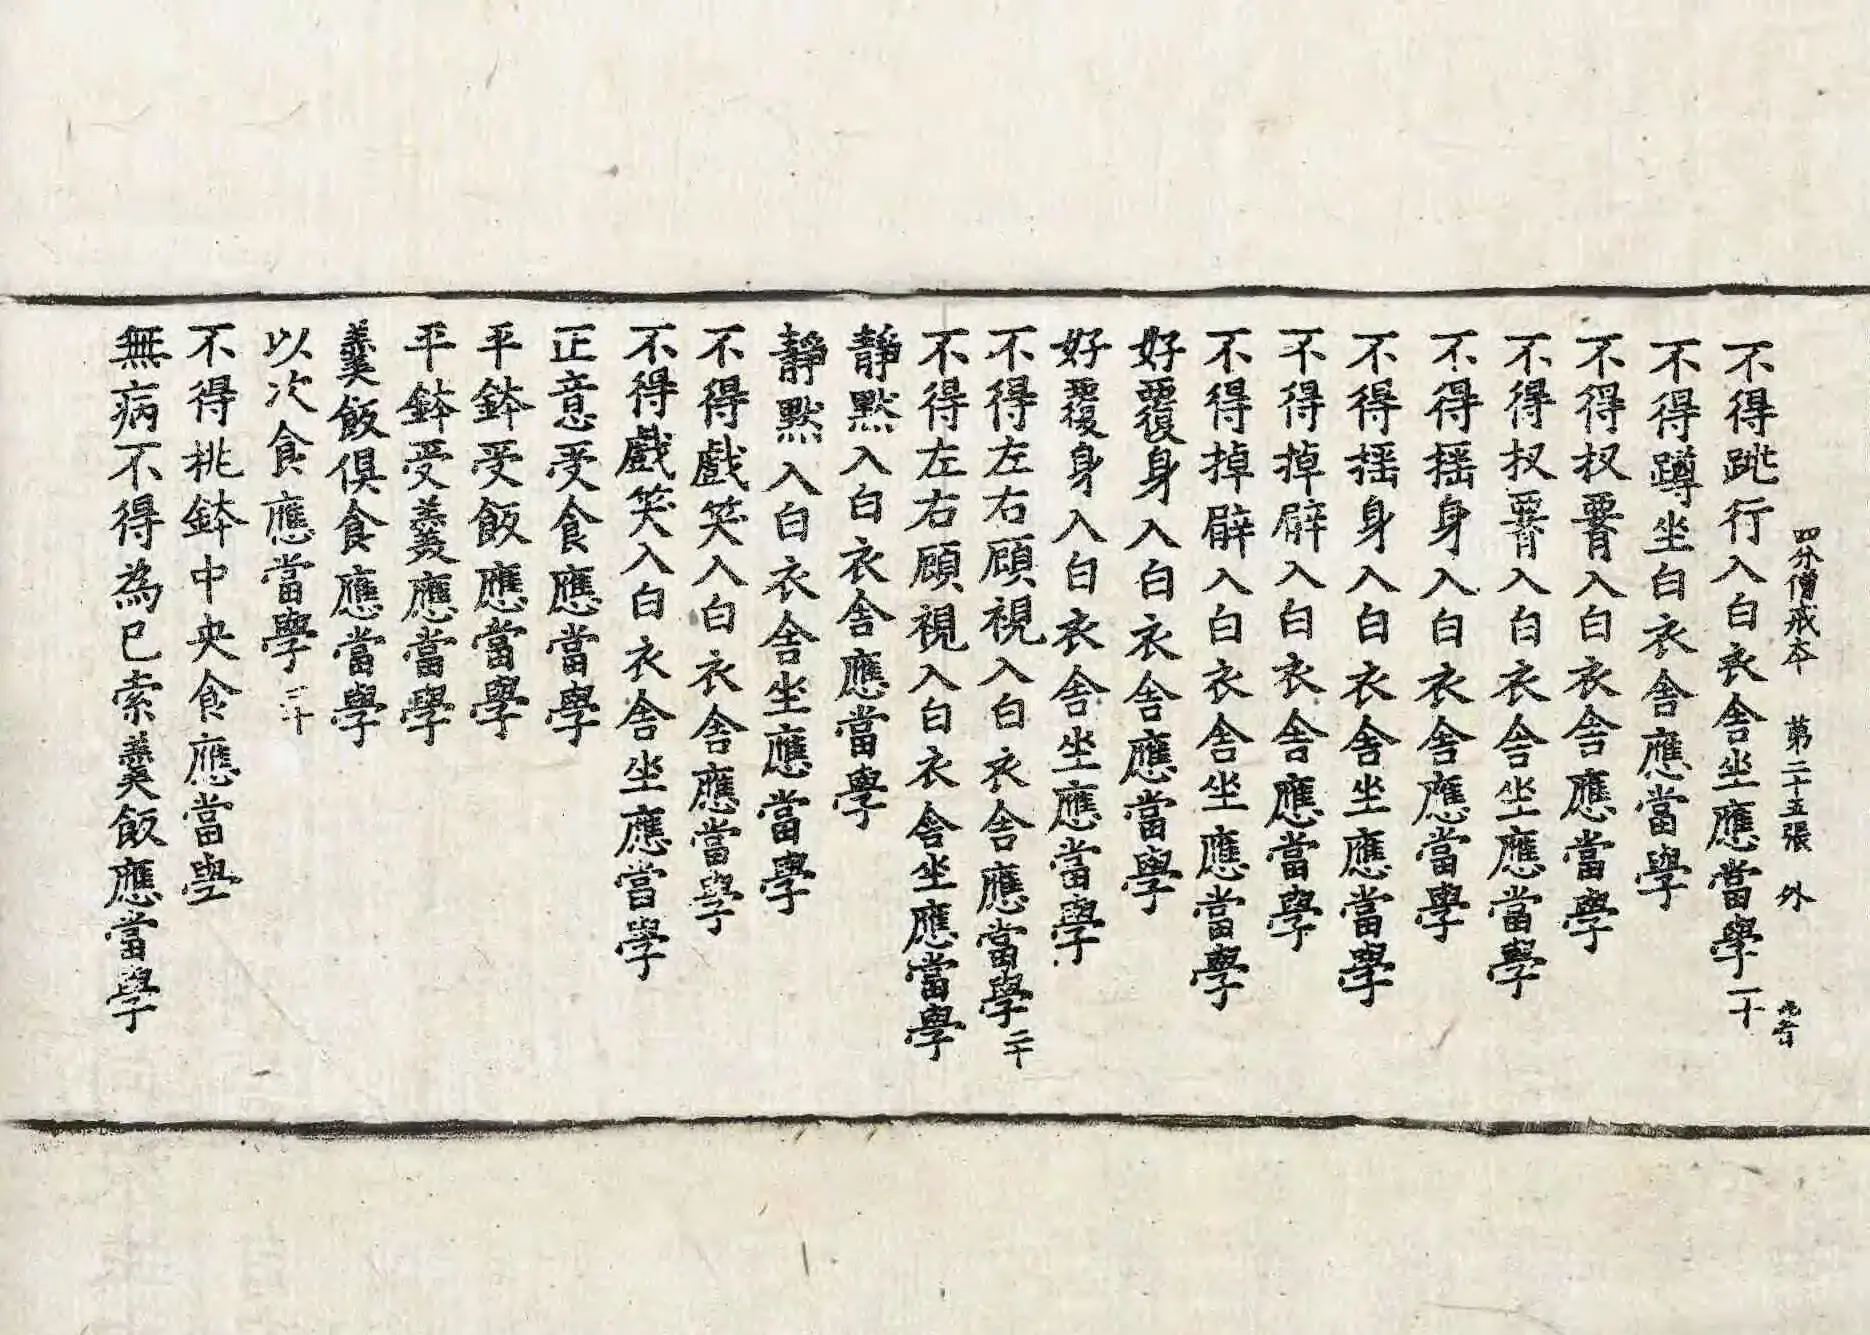 四分僧戒本 第二十五張 外
不得跳行入白衣舍坐應當學一十
不得蹲坐白衣舍應當學
不得杈䏶入白衣舍應當學
不得杈䏶入白衣舍坐應當學
不得揺身入白衣舍應當學
不得揺身入白衣舍坐應當學
不得掉臂入白衣舍應當學
不得掉臂入白衣舍坐應當學
好覆身入白衣舍應當學
好覆身入白衣舍坐應當學
不得左右顧視入白衣舍應當學二十
不得左右顧視入白衣舍坐應當學
靜默入白衣舍應當學
靜默入白衣舍坐應當學
不得戲笑入白衣舍應當學
不得戲笑入白衣舍坐應當學
正意受食應當學
平鉢受飯應當學
平鉢受羹應當學
羹飯俱食應當學
以次食應當學三十
不得挑鉢中央食應當學
無病不得為已索羹飯應當學